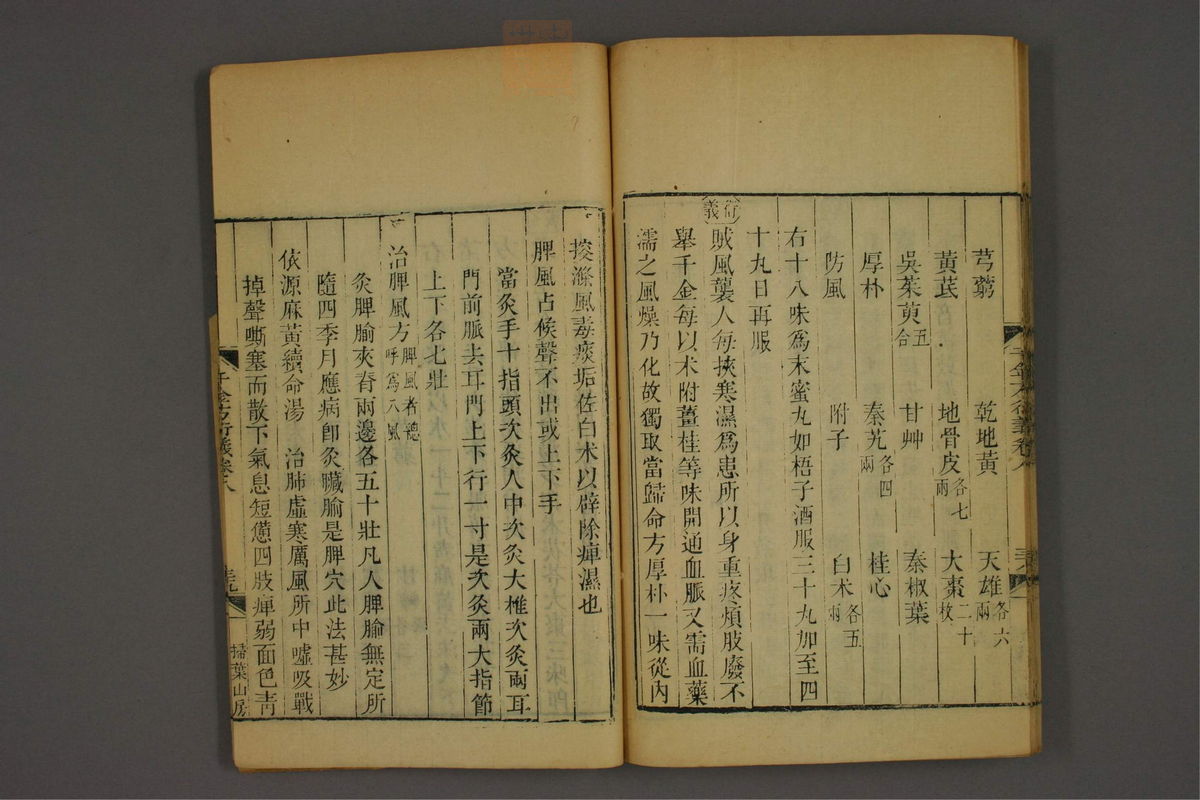 芎藭 乾地黃 天雄各六兩
黃芪 地骨皮各七兩 大棗二十枚
吳茱萸五合 甘艸 秦椒葉
厚朴 秦艽各四兩 桂心
防風 附子 白朮各五兩
右十八味爲末蜜丸如梧子酒服三十丸加至四
十丸日再服
衍義
賊風襲人每挾寒濕爲患所以身重疼煩肢廢不
舉千金每以朮附薑桂等味開通血脈又需血藥
濡之風燥乃化故獨取當歸命方厚朴一味從內
搜滌風毒痰垢佐白朮以辟除痺濕也
脾風占候聲不出或上下手
當灸手十指頭次灸人中次灸大椎次灸兩耳
門前脈去耳門上下行一寸是次灸兩大指節
上下各七壯
治脾風方脾風者總呼爲八風
灸脾腧夾脊兩邊各五十壯凡人脾腧無定所
隨四季月應病卽灸臟腧是脾穴此法甚妙
依源麻黃續命湯 治肺虛寒厲風所中噓吸戰
掉聲嘶塞而散下氣息短憊四肢痺弱面色青
千金方衍義卷八
掃葉山房